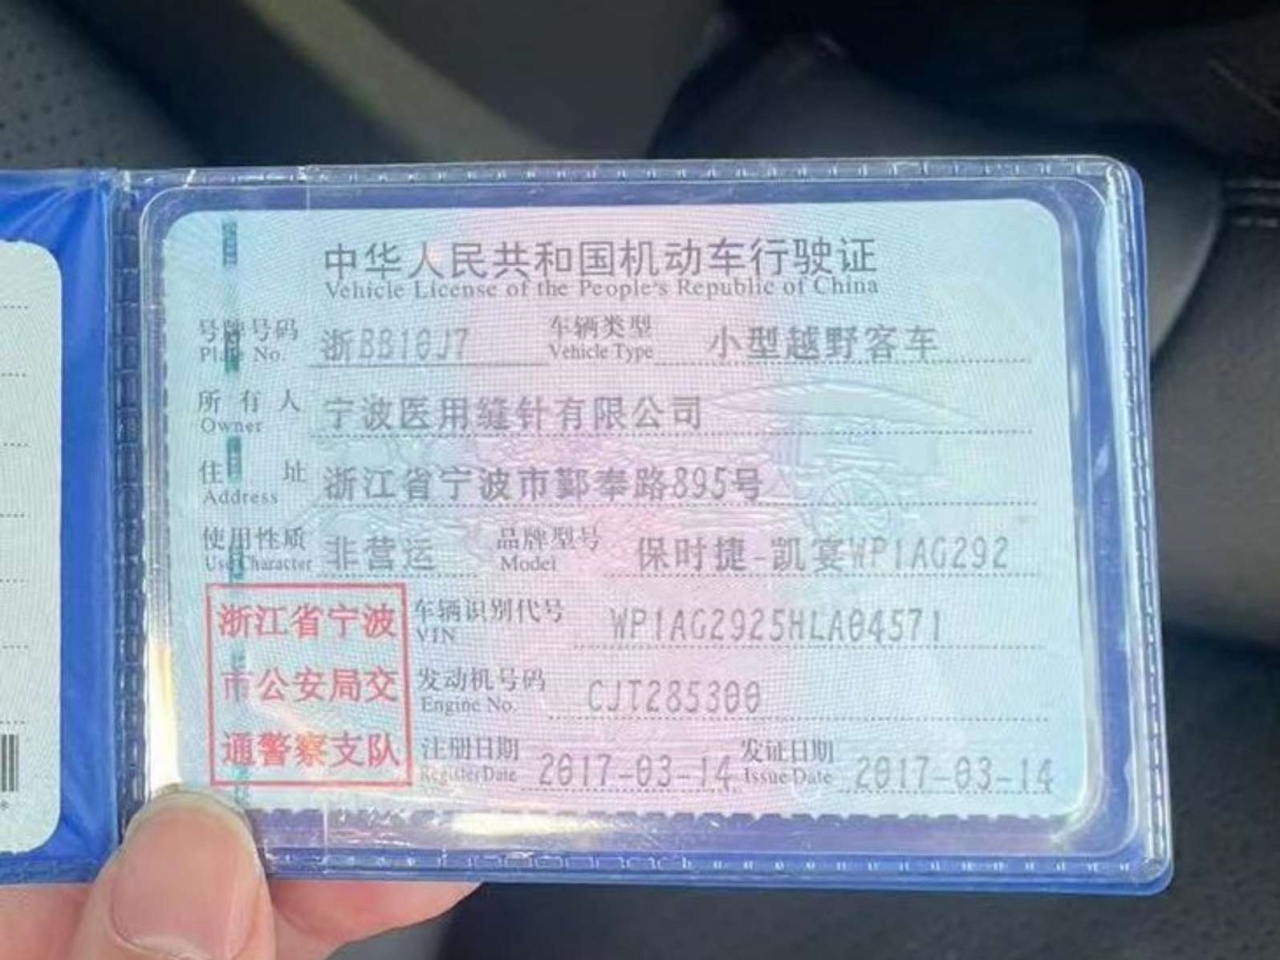 中华人民共和国机动车行驶证
Vehicle License of the People's Republic of China
号牌号码 浙BB10J7 车辆类型 小型越野客车
Plate No. Vehicle Type
所有人 宁波医用缝针有限公司
Owner
住址 浙江省宁波市鄞奉路895号
Address
使用性质 非营运 品牌型号 保时捷-凯宴WP1AG292
Use Character Model
浙江省宁波 车辆识别代号 WP1AG2925HLA04571
VIN
市公安局交 发动机号码 CJT285300
Engine No.
通警察支队 注册日期 2017-03-14 发证日期 2017-03-14
Register Date Issue Date